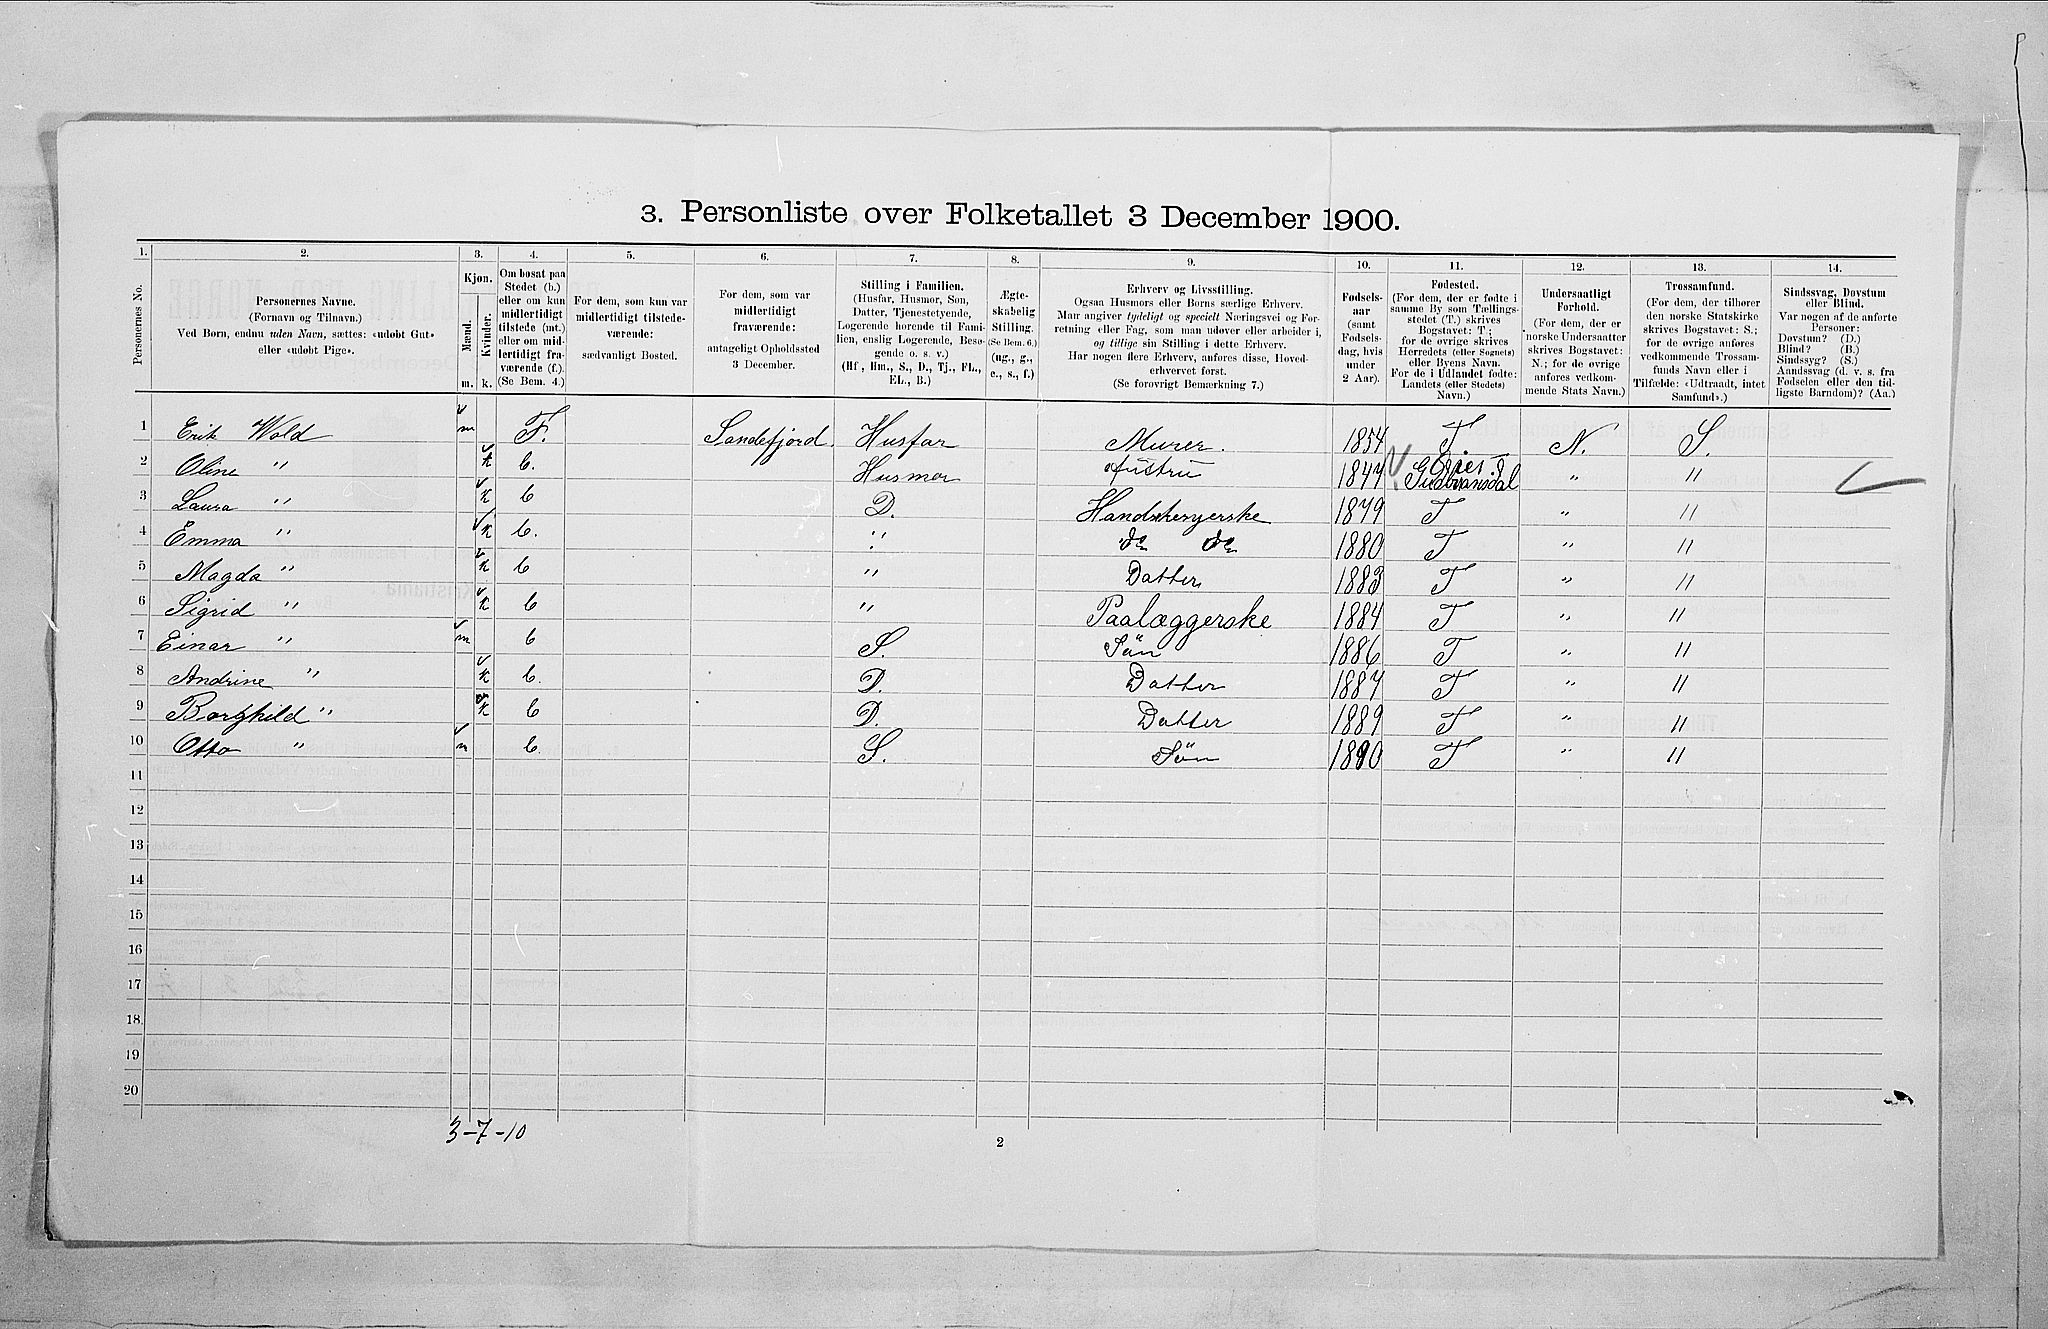 3. Personliste over Folketallet 3 December 1900.
1. 2. 3. 4. 5. 6. 7. 8. 9. 10. 11. 12. 13. 14.
Personernes No.
Personernes Navne.
(Fornavn og Tilnavn.)
Ved Børn, endnu uden Navn, sættes: «udøbt Gut»
eller «udøbt Pige».
Kjøn.
Mænd.
Kvinder.
m. k.
Om bosat paa
Stedet (b.)
eller om kun
midlertidigt
tilstede (mt.)
eller om mid-
lertidigt fra-
værende (f.).
(Se Bem. 4.)
For dem, som kun var
midlertidigt tilstede-
værende:
sædvanligt Bosted.
For dem, som var
midlertidigt
fraværende:
antageligt Opholdssted
3 December.
Stilling i Familien.
(Husfar, Husmor, Søn,
Datter, Tjenestetyende,
Logerende hørende til Fami-
lien, enslig Logerende, Besø-
gende o. s. v.)
(Hf, Hm., S., D., Tj., FL.,
EL., B.)
Ægte-
skabelig
Stilling.
(Se Bem. 6.)
(ug., g.,
e., s., f.)
Erhverv og Livsstilling.
Ogsaa Husmors eller Børns særlige Erhverv.
Man angiver tydeligt og specielt Næringsvei og For-
retning eller Fag, som man udøver eller arbeider i,
og tillige sin Stilling i dette Erhverv.
Har nogen flere Erhverv, anføres disse, Hoved-
erhvervet først.
(Se forøvrigt Bemærkning 7.)
Fødsels-
aar
(samt
Fødsels-
dag, hvis
under
2 Aar).
Fødested.
(For dem, der er fødte i
samme By som Tællings-
stedet (T.) skrives
Bogstavet: T.;
for de øvrige skrives
Herredets (eller Sognets)
eller Byens Navn.
For de i Udlandet fødte:
Landets (eller Stedets)
Navn.)
Undersaatligt
Forhold.
(For dem, der er
norske Undersaatter
skrives Bogstavet:
N.; for de øvrige
anføres vedkom-
mende Stats Navn.)
Trossamfund.
(For dem, der tilhører
den norske Statskirke
skrives Bogstavet: S.;
for de øvrige anføres
vedkommende Trossam-
funds Navn eller i
Tilfælde: «Udtraadt, intet
Samfund».)
Sindssvag, Døvstum
eller Blind.
Var nogen af de anførte
Personer:
Døvstum? (D.)
Blind? (B.)
Sindssyg? (S.)
Aandssvag (d. v. s. fra
Fødselen eller den tid-
ligste Barndom)? (Aa.)
1 Erik Wold m F. Sandefjord. Husfar Murer. 1854 T N. S.
2 Oline " k b. Husmor 1847 Gudbransdal " "
3 Laura " k b D. 1879 T " "
4 Emma " k b. " do do 1880 T " "
5 Magda " k b " Datter 1883 T " "
6 Sigrid " k b " Paalæggerske 1884 T " "
7 Einar " m b S. Søn 1886 T " "
8 Andrine " k b. D. Datter 1887 T " "
9 Borghild " k b D. Datter 1889 T " "
10 Otto " m b. S. Søn 1890 T " "
11
12
13
14
15
16
17
18
19
20
3-7-10
2